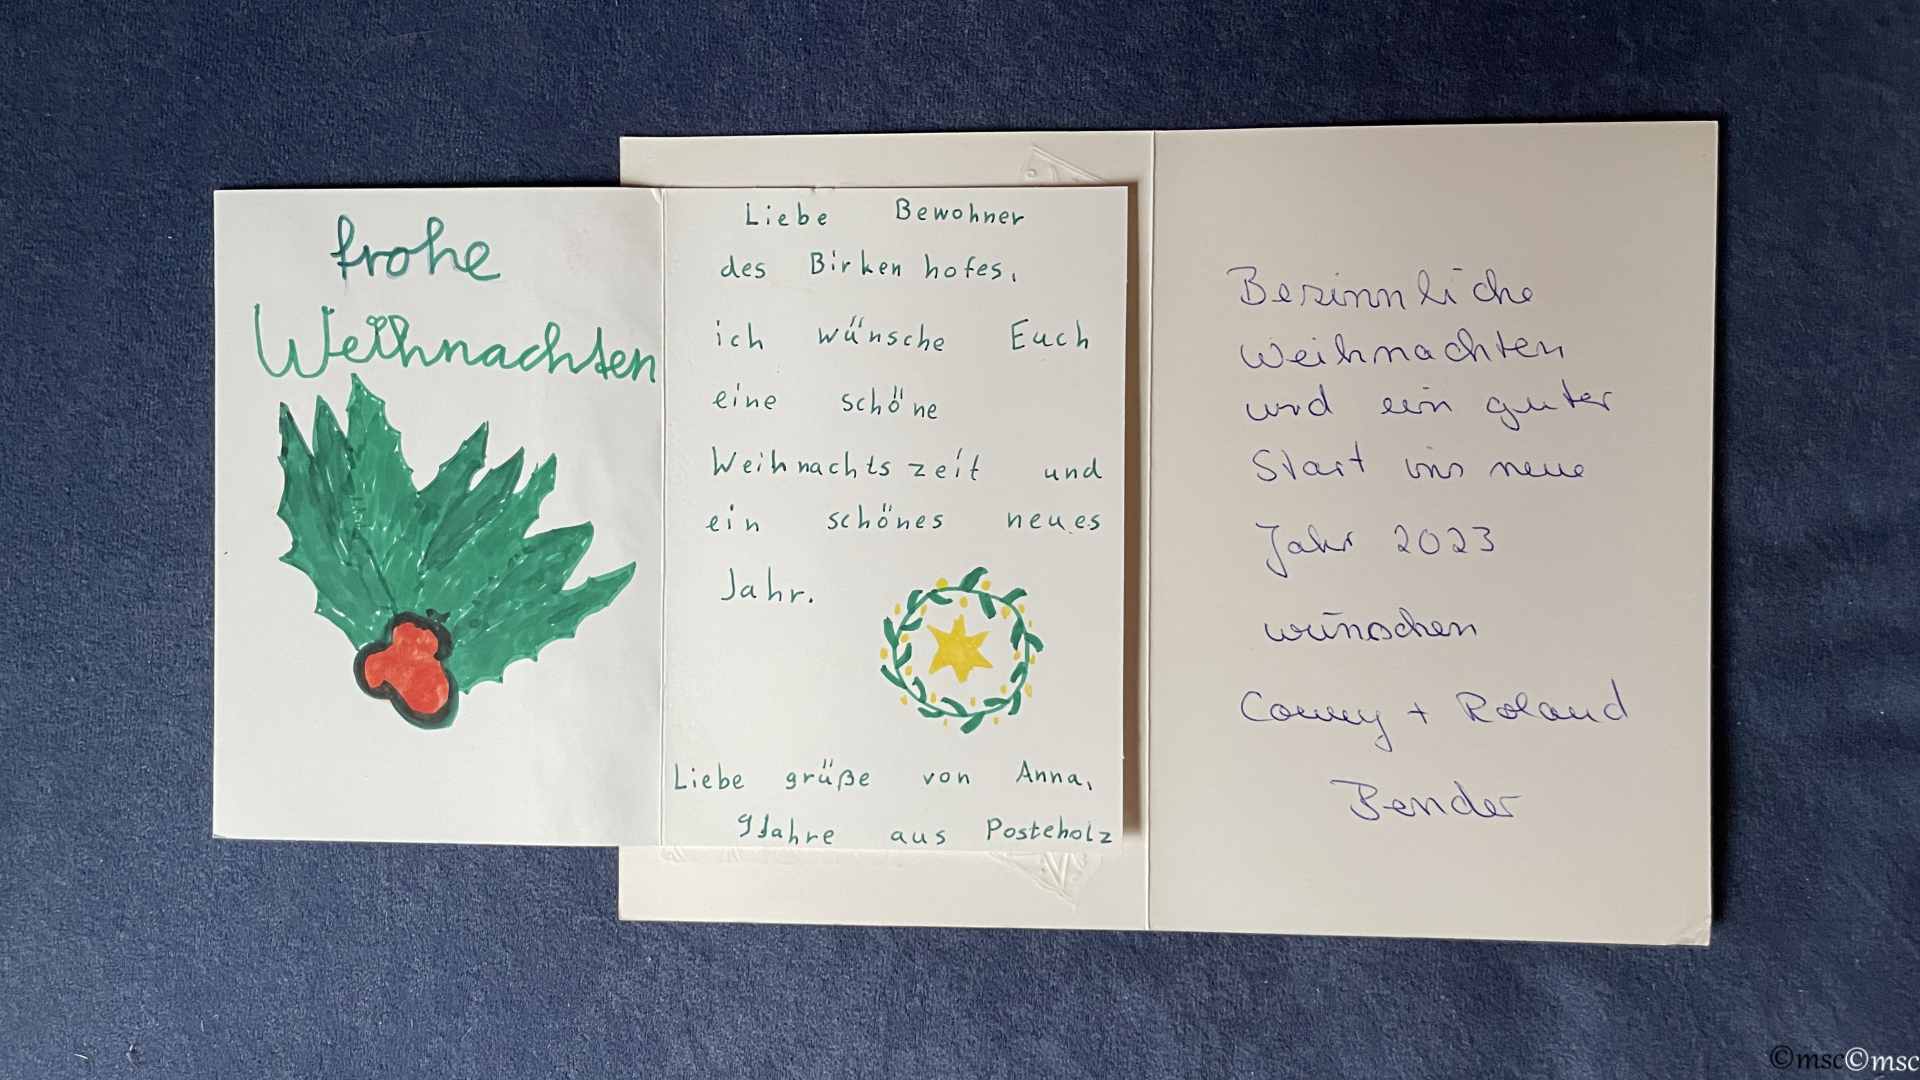 frohe
Weihnachten
Liebe Bewohner
des Birkenhofes,
ich wünsche Euch
eine schöne
Weihnachtszeit und
ein schönes neues
Jahr.
Liebe grüße von Anna,
9 Jahre aus Posteholz
Besinnliche
Weihnachten
und ein guter
Start ins neue
Jahr 2023
wünschen
Conny + Roland
Bender
©msc©msc